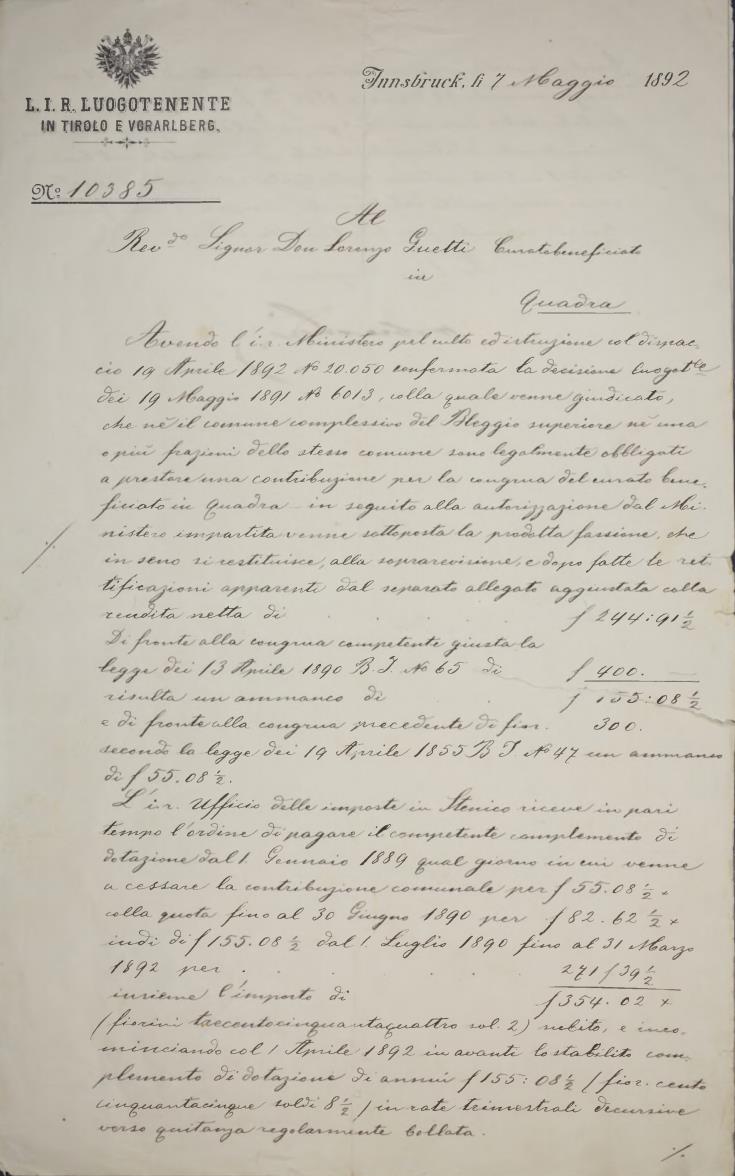 L. I. R. LUOGOTENENTE
IN TIROLO E VORARLBERG.
Innsbruck, li 7 Maggio 1892
No: 10385
Al
Revdo Signor Don Lorenzo Guetti Curatobeneficiato
in
Quadra
Avendo l'i. r. Ministero pel culto ed istruzione col dispac-
cio 19 Aprile 1892 No 20.050 confermata la decisione luogotle
dei 19 Maggio 1891 No 6013, colla quale venne giudicato,
che nè il comune complessivo del Bleggio superiore nè una
o più frazioni dello stesso comune sono legalmente obbligati
a prestare una contribuzione per la congrua del curato bene-
ficiato in Quadra - in seguito alla autorizzazione dal Mi-
nistero impartita venne sottoposta la prodotta fassione, che
in seno si restituisce, alla soprarevisione, e dopo fatte le ret-
tificazioni apparenti dal separato allegato aggiustata colla
rendita netta di . . . . f 244:91 1/2
Di fronte alla congrua competente giusta la
legge dei 13 Aprile 1890 B. I. No 65 di f 400. —
risulta un ammanco di f 155:08 1/2
e di fronte alla congrua precedente di fior. 300.
secondo la legge dei 19 Aprile 1855 B I No 47 un ammanco
di f 55.08 1/2.
L'i. r. Ufficio delle imposte in Stenico riceve in pari
tempo l'ordine di pagare il competente complemento di
dotazione dal 1. Gennaio 1889 qual giorno in cui venne
a cessare la contribuzione comunale per f 55.08 1/2 x
colla quota fino al 30 Giugno 1890 per f 82.62 1/2 x
indi di f 155.08 1/2 dal 1. Luglio 1890 fino al 31 Marzo
1892 per . . . . 271 f 39 1/2
insieme l'importo di f 354.02 x
(fiorini trecentocinquantaquattro sol. 2) subito, e inco-
minciando col 1 Aprile 1892 in avanti lo stabilito com-
plemento di dotazione di annui f 155:08 1/2 / fior. cento
cinquantacinque soldi 8 1/2 / in rate trimestrali decursive
verso quitanza regolarmente bollata.
./.